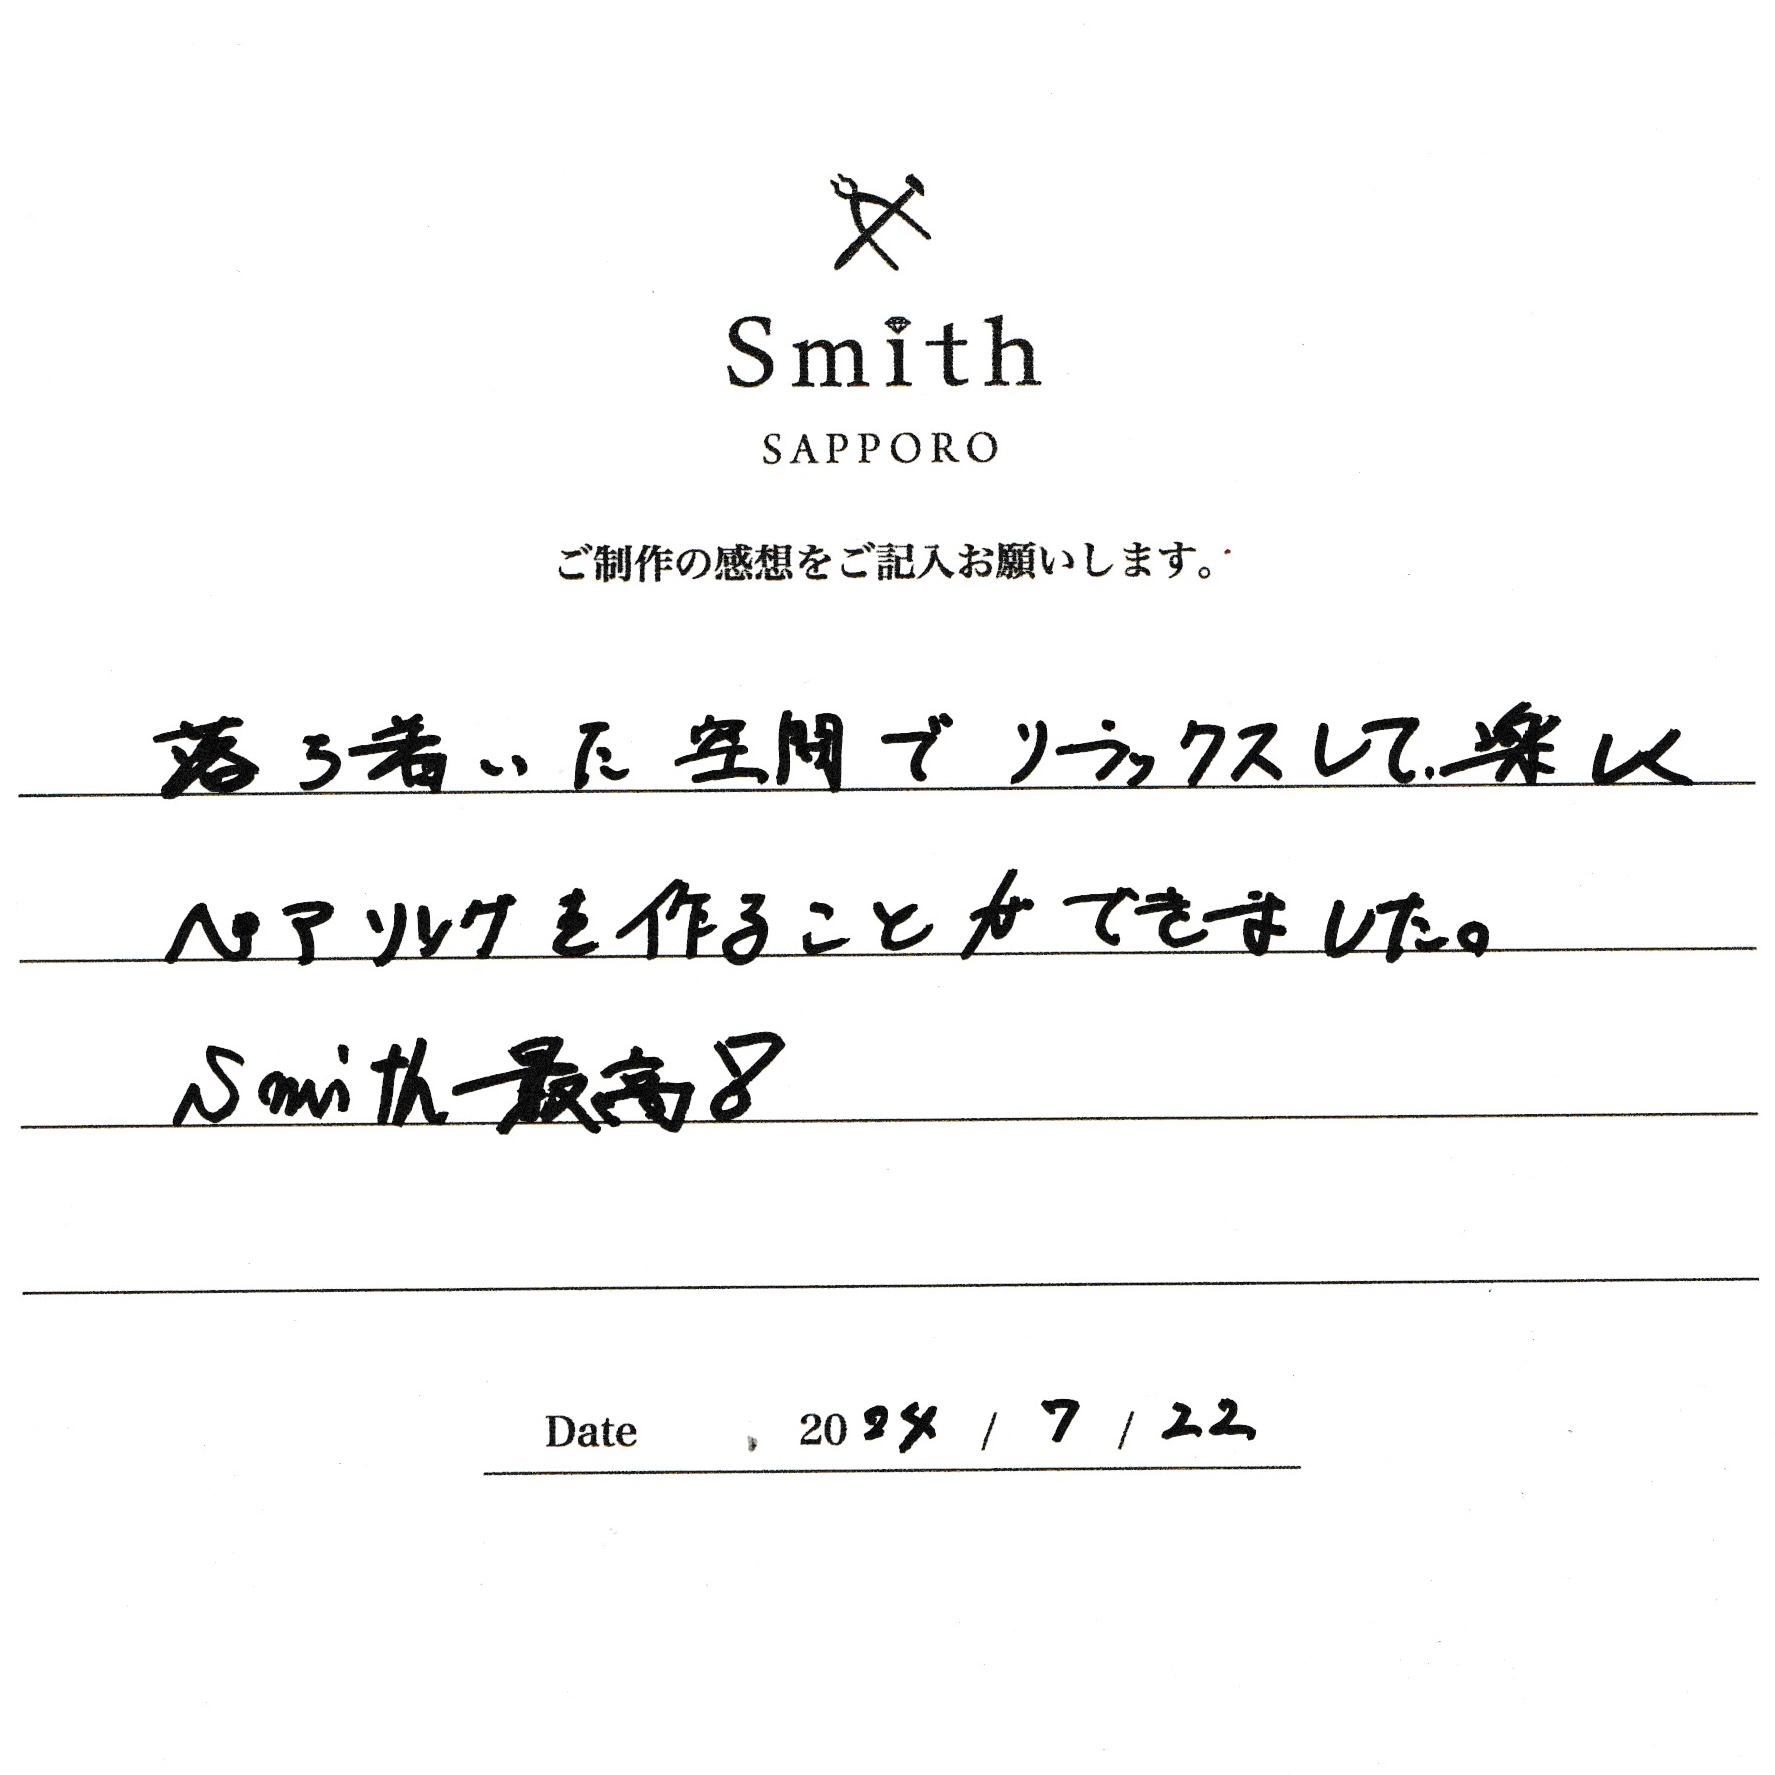 Smith
SAPPORO
ご制作の感想をご記入お願いします。
落ち着いた空間でリラックスして、楽しく
ペアリングを作ることができました。
Smith最高8
Date 2024 / 7 / 22